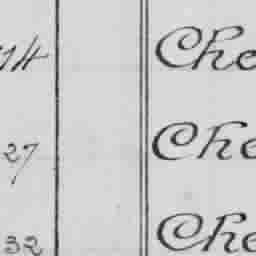 14 Che
27 Che
32 Che